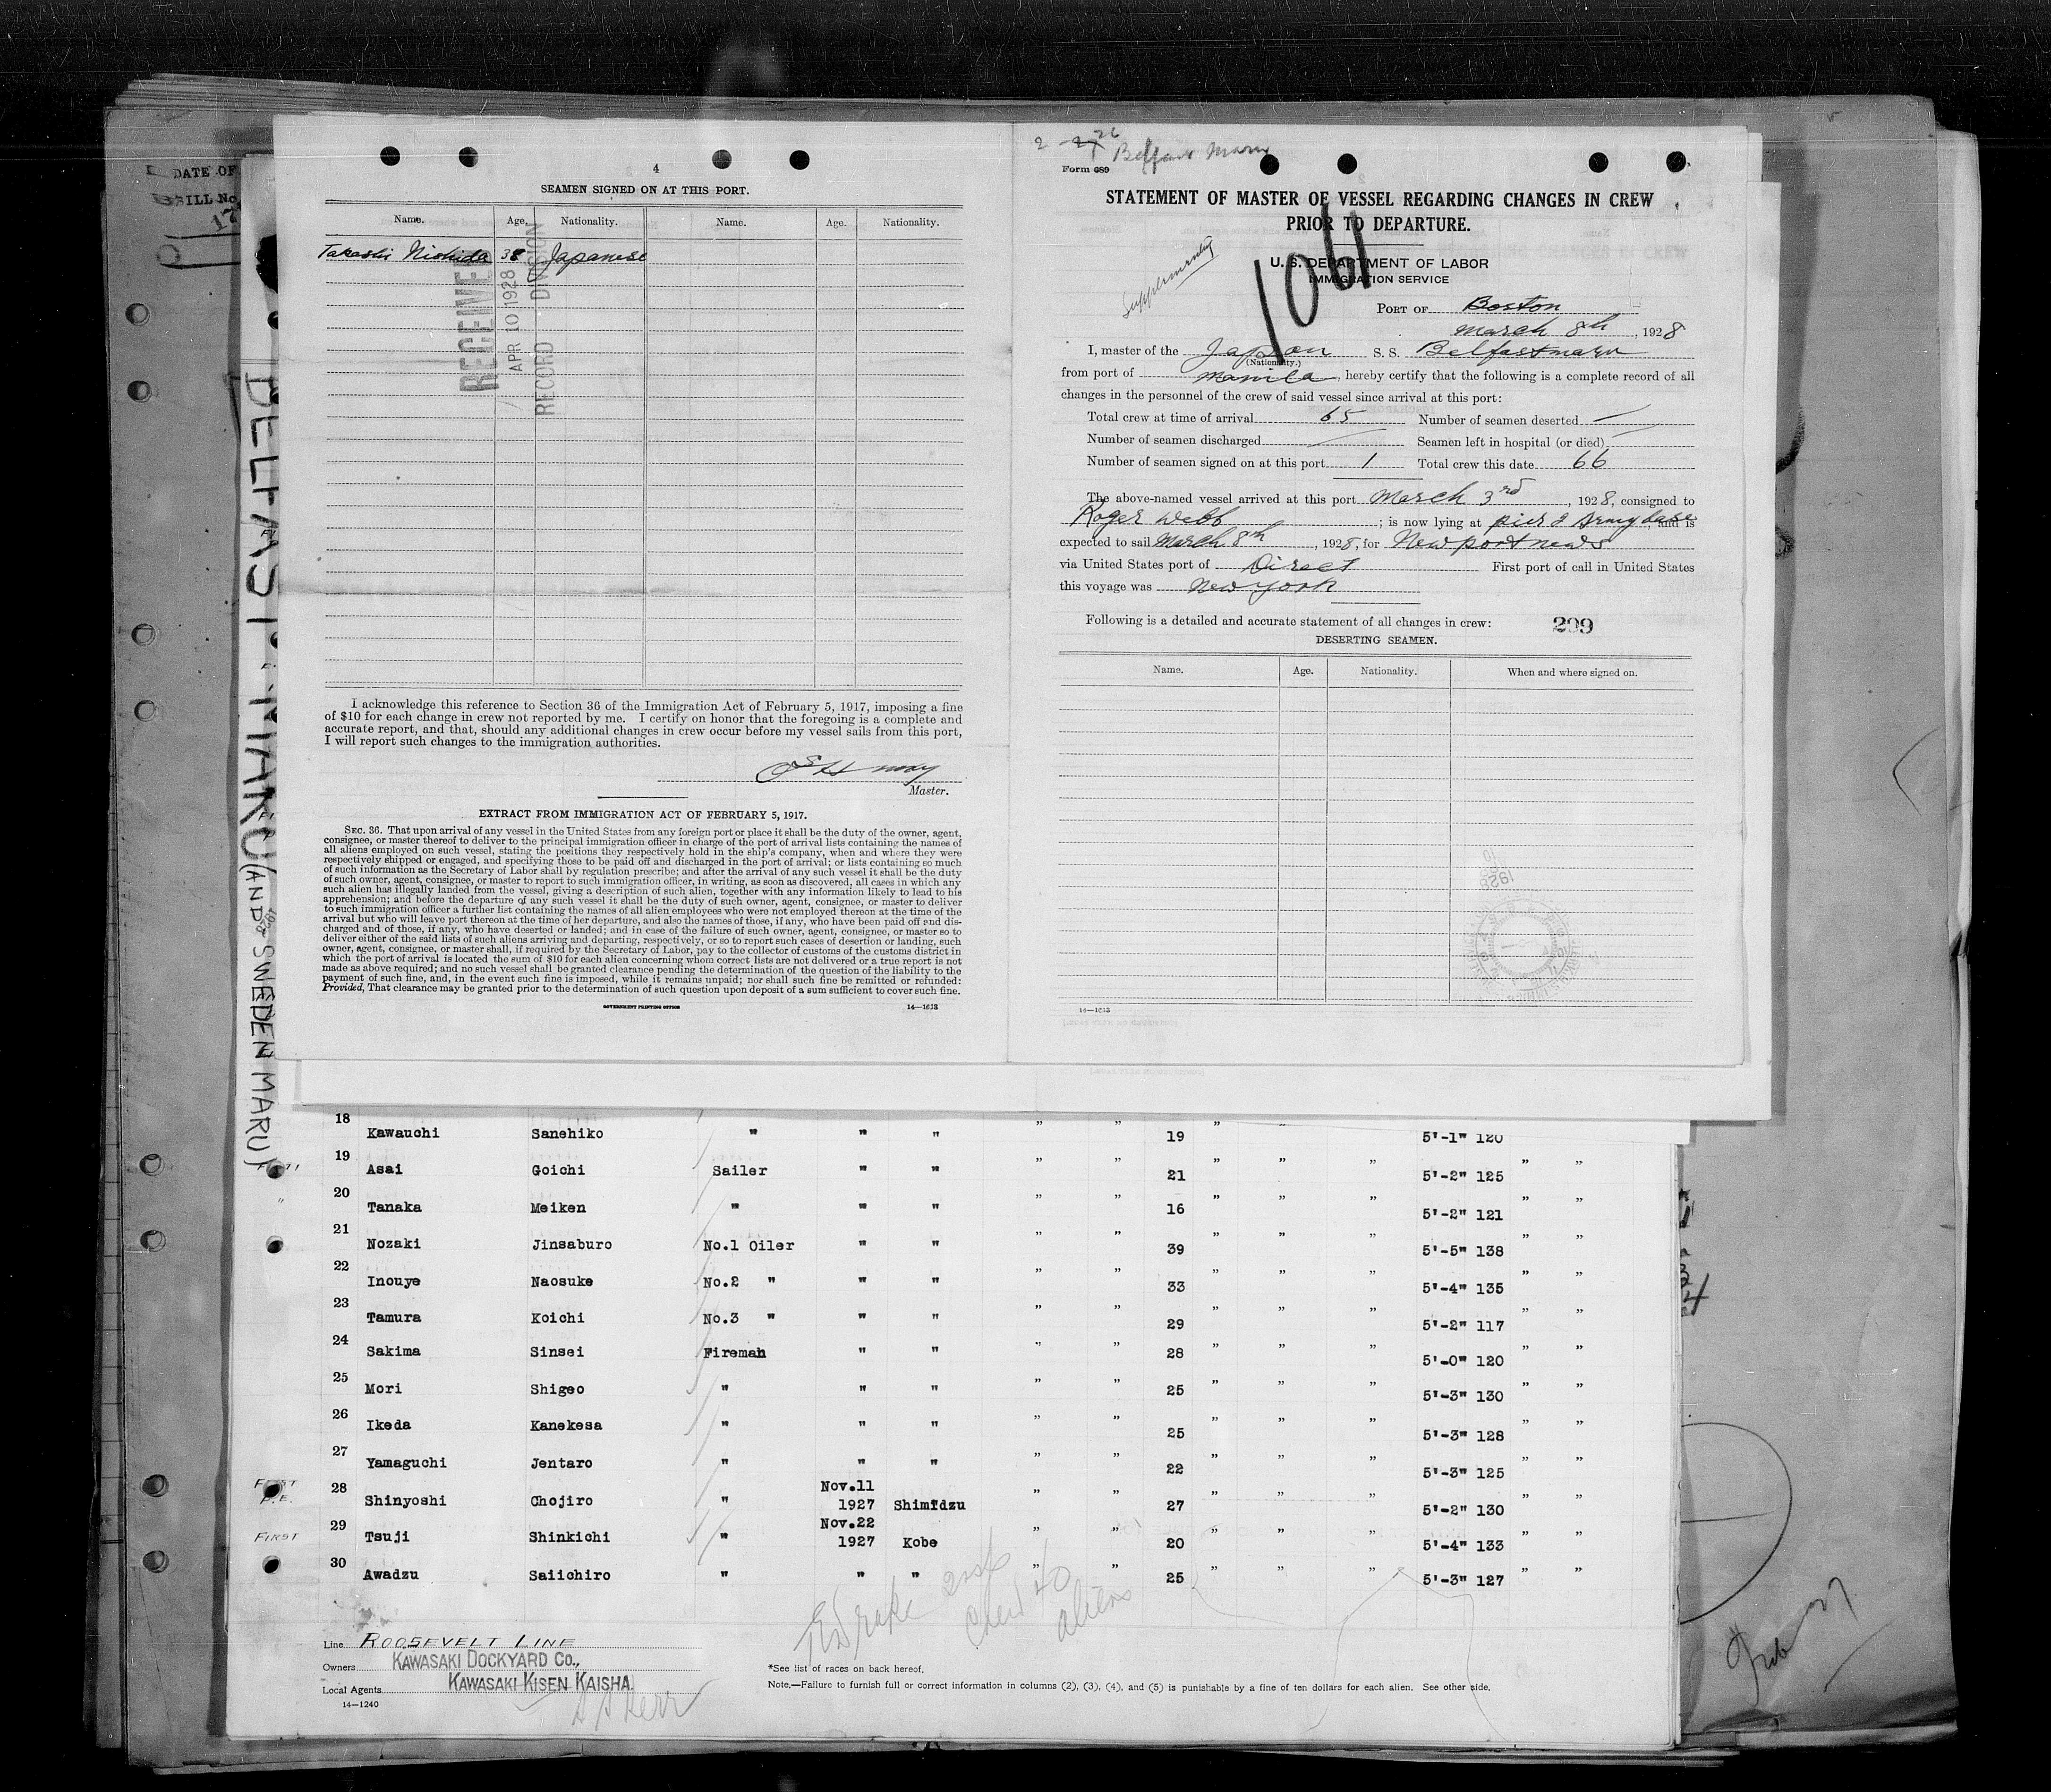 DATE OF
BILL No.
17
BELFAST MARU (AND SWEDEN MARU)
4
SEAMEN SIGNED ON AT THIS PORT.
Name. Age. Nationality. Name. Age. Nationality.
Takashi Nishida 38 Japanese
RECEIVED
APR 10 1928
RECORD DIVISION
I acknowledge this reference to Section 36 of the Immigration Act of February 5, 1917, imposing a fine
of $10 for each change in crew not reported by me. I certify on honor that the foregoing is a complete and
accurate report, and that, should any additional changes in crew occur before my vessel sails from this port,
I will report such changes to the immigration authorities.
Master.
EXTRACT FROM IMMIGRATION ACT OF FEBRUARY 5, 1917.
SEC. 36. That upon arrival of any vessel in the United States from any foreign port or place it shall be the duty of the owner, agent,
consignee, or master thereof to deliver to the principal immigration officer in charge of the port of arrival lists containing the names of
all aliens employed on such vessel, stating the positions they respectively hold in the ship's company, when and where they were
respectively shipped or engaged, and specifying those to be paid off and discharged in the port of arrival; or lists containing so much
of such information as the Secretary of Labor shall by regulation prescribe; and after the arrival of any such vessel it shall be the duty
of such owner, agent, consignee, or master to report to such immigration officer, in writing, as soon as discovered, all cases in which any
such alien has illegally landed from the vessel, giving a description of such alien, together with any information likely to lead to his
apprehension; and before the departure of any such vessel it shall be the duty of such owner, agent, consignee, or master to deliver
to such immigration officer a further list containing the names of all alien employees who were not employed thereon at the time of the
arrival but who will leave port thereon at the time of her departure, and also the names of those, if any, who have been paid off and dis-
charged and of those, if any, who have deserted or landed; and in case of the failure of such owner, agent, consignee, or master so to
deliver either of the said lists of such aliens arriving and departing, respectively, or so to report such cases of desertion or landing, such
owner, agent, consignee, or master shall, if required by the Secretary of Labor, pay to the collector of customs of the customs district in
which the port of arrival is located the sum of $10 for each alien concerning whom correct lists are not delivered or a true report is not
made as above required; and no such vessel shall be granted clearance pending the determination of the question of the liability to the
payment of such fine, and, in the event such fine is imposed, while it remains unpaid; nor shall such fine be remitted or refunded:
Provided, That clearance may be granted prior to the determination of such question upon deposit of a sum sufficient to cover such fine.
GOVERNMENT PRINTING OFFICE 14—1613
Belfast Maru
Form 689
STATEMENT OF MASTER OF VESSEL REGARDING CHANGES IN CREW
PRIOR TO DEPARTURE.
1061
Supplementary
U. S. DEPARTMENT OF LABOR
IMMIGRATION SERVICE
PORT OF Boston
March 8th, 1928
I, master of the Japan S. S. Belfastmaru
(Nationality.)
from port of Manila, hereby certify that the following is a complete record of all
changes in the personnel of the crew of said vessel since arrival at this port:
Total crew at time of arrival 65 Number of seamen deserted —
Number of seamen discharged — Seamen left in hospital (or died) —
Number of seamen signed on at this port 1 Total crew this date 66
The above-named vessel arrived at this port March 3rd, 1928, consigned to
Roger Webb; is now lying at pier 2 Army base, and is
expected to sail March 8th, 1928, for Newportnews
via United States port of Direct First port of call in United States
this voyage was New York
Following is a detailed and accurate statement of all changes in crew: 299
DESERTING SEAMEN.
Name. Age. Nationality. When and where signed on.
14—1613
18 Kawauchi Sanehiko " " " " " 19 " " 5'-1" 120
19 Asai Goichi Sailer " " " " 21 " " " 5'-2" 125 " "
20 Tanaka Meiken " " " " " 16 " " " 5'-2" 121 " "
21 Nozaki Jinsaburo No.1 Oiler " " " " 39 " " " 5'-5" 138 " "
22 Inouye Naosuke No.2 " " " " " 33 " " " 5'-4" 135 " "
23 Tamura Koichi No.3 " " " " " 29 " " " 5'-2" 117 " "
24 Sakima Sinsei Fireman " " " " 28 " " " 5'-0" 120 " "
25 Mori Shigeo " " " " " 25 " " " 5'-3" 130 " "
26 Ikeda Kanekesa " " " " " 25 " " " 5'-3" 128 " "
27 Yamaguchi Jentaro " " " " " 22 " " " 5'-3" 125 " "
FIRST
28 Shinyoshi Chojiro " Nov.11 1927 Shimidzu " " 27 " " " 5'-2" 130 " "
FIRST 29 Tsuji Shinkichi " Nov.22 1927 Kobe " " 20 " " " 5'-4" 133 " "
30 Awadzu Saiichiro " " " " " 25 " " " 5'-3" 127 " "
aliens
Line ROOSEVELT LINE
Owners KAWASAKI DOCKYARD CO.,
Local Agents KAWASAKI KISEN KAISHA.
14—1240
*See list of races on back hereof.
Note.—Failure to furnish full or correct information in columns (2), (3), (4), and (5) is punishable by a fine of ten dollars for each alien. See other side.